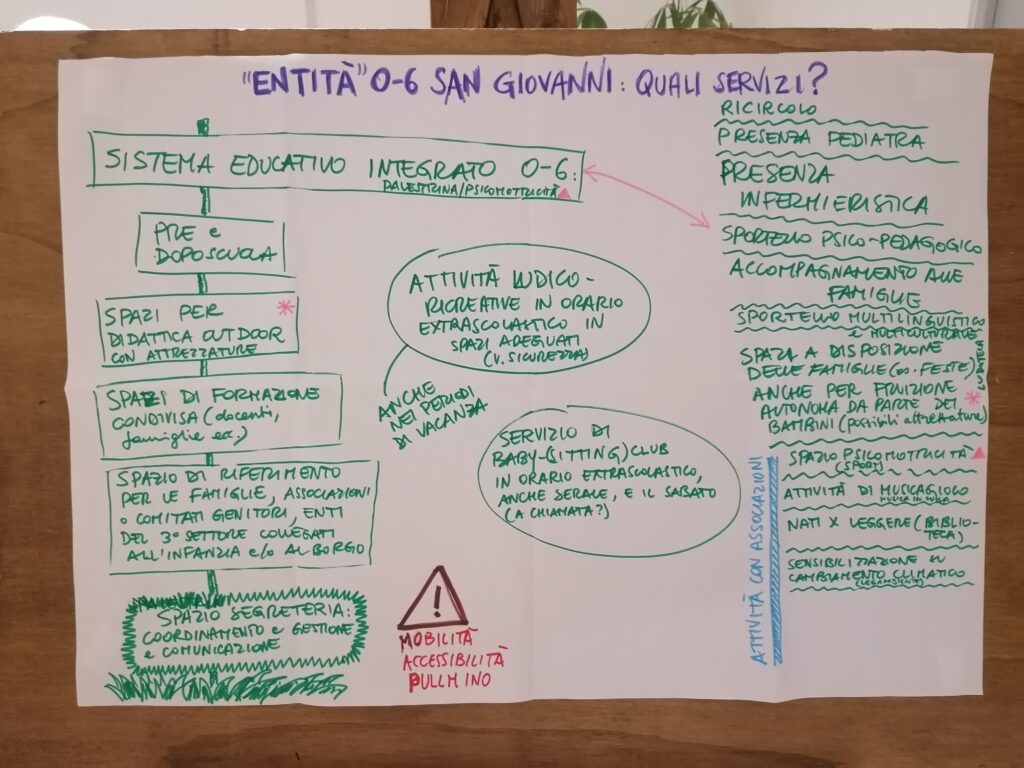 "ENTITÀ" 0-6 SAN GIOVANNI: QUALI SERVIZI?
SISTEMA EDUCATIVO INTEGRATO 0-6:
PALESTRINA/PSICOMOTRICITÀ
PRE e
DOPOSCUOLA
SPAZI PER
DIDATTICA OUTDOOR
CON ATTREZZATURE
SPAZI DI FORMAZIONE
CONDIVISA (docenti,
famiglie ecc.)
SPAZIO DI RIFERIMENTO
PER LE FAMIGLIE, ASSOCIAZIONI
o COMITATI GENITORI, ENTI
DEL 3° SETTORE COLLEGATI
ALL'INFANZIA e/o AL BORGO
SPAZIO SEGRETERIA:
COORDINAMENTO e GESTIONE
e COMUNICAZIONE
ATTIVITÀ LUDICO-
RICREATIVE IN ORARIO
EXTRASCOLASTICO IN
SPAZI ADEGUATI
(V. SICUREZZA)
ANCHE
NEI PERIODI
DI VACANZA
SERVIZIO DI
BABY-(SITTING) CLUB
IN ORARIO EXTRASCOLASTICO,
ANCHE SERALE, E IL SABATO
(A CHIAMATA?)
!
MOBILITÀ
ACCESSIBILITÀ
PULLMINO
RICIRCOLO
PRESENZA PEDIATRA
PRESENZA
INFERMIERISTICA
SPORTELLO PSICO-PEDAGOGICO
ACCOMPAGNAMENTO ALLE
FAMIGLIE
SPORTELLO MULTILINGUISTICO
e MULTICULTURALE
SPAZI A DISPOSIZIONE
DELLE FAMIGLIE (es. FESTE)
LUDOTECA
ANCHE PER FRUIZIONE
AUTONOMA DA PARTE DEI
BAMBINI (possibili attrezzature)
ATTIVITÀ CON ASSOCIAZIONI
SPAZIO PSICOMOTRICITÀ
(SPORT)
ATTIVITÀ DI MUSICAGIOCO
MUSICA IN CULLA
NATI X LEGGERE (BIBLIO-
TECA)
SENSIBILIZZAZIONE SU
CAMBIAMENTO CLIMATICO
(LEGAMBIENTE)